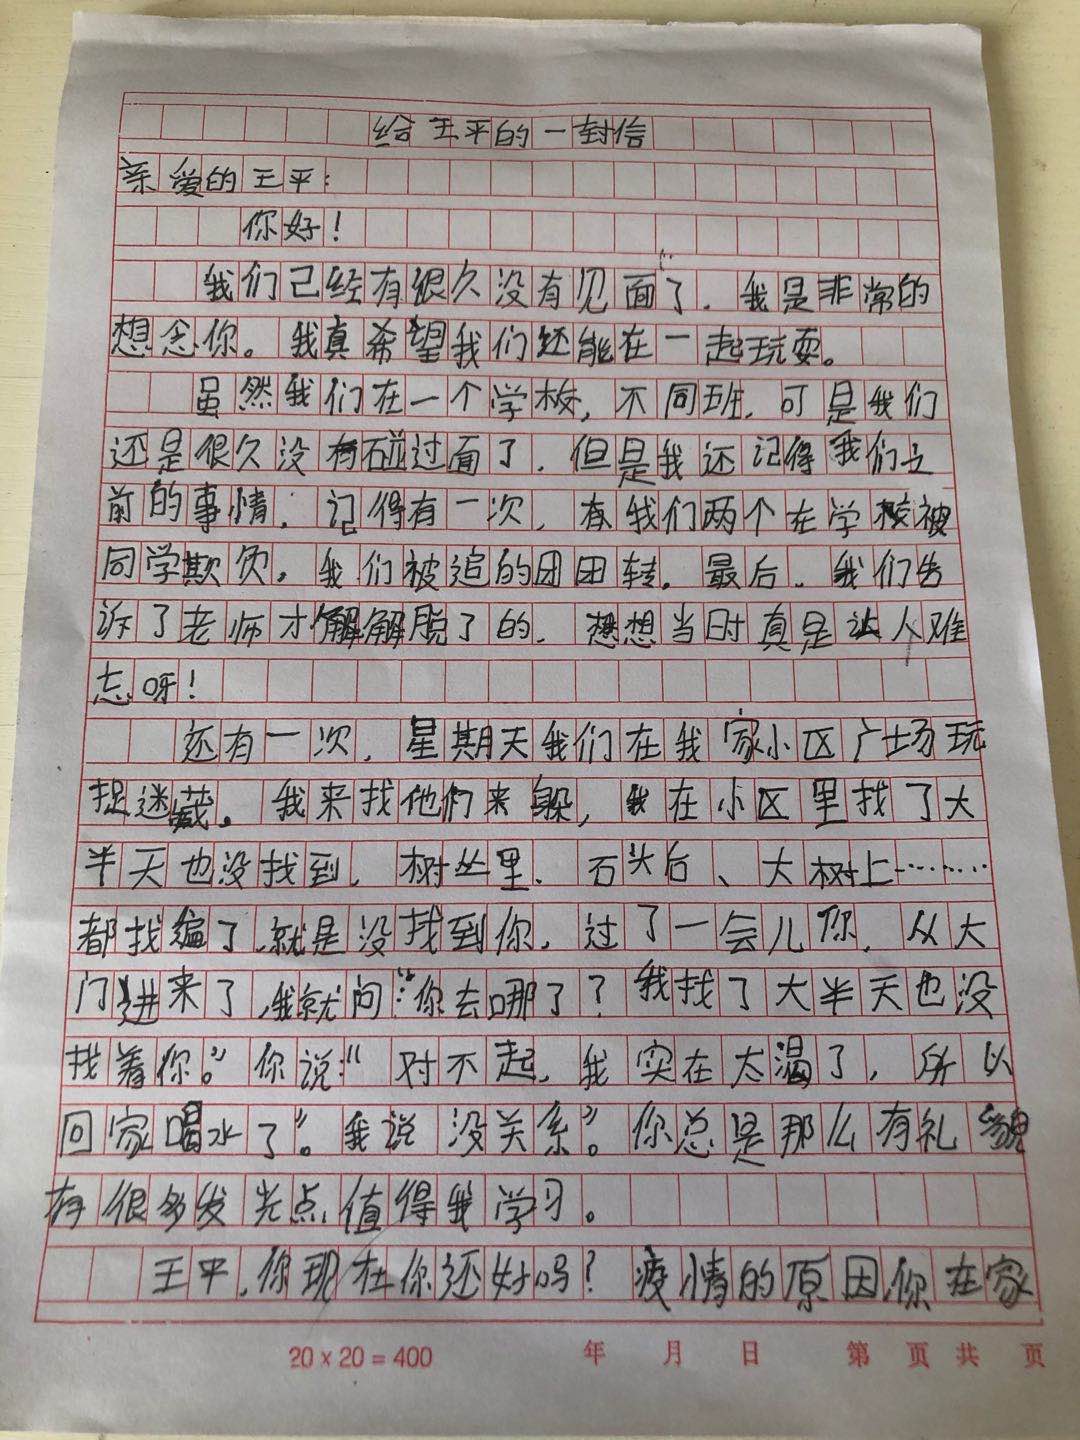 给王平的一封信
亲爱的王平：
你好！
我们己经有很久没有见面了，我是非常的
想念你。我真希望我们还能在一起玩耍。
虽然我们在一个学校，不同班，可是我们
还是很久没有碰过面了，但是我还记得我们之
前的事情，记得有一次，有我们两个在学校被
同学欺负，我们被追的团团转，最后，我们告
诉了老师才解解脱了的，想想当时真是让人难
忘呀！
还有一次，星期天我们在我家小区广场玩
捉迷藏。我来找他们来躲，我在小区里找了大
半天也没找到，树丛里、石头后、大树上………
都找遍了，就是没找到你，过了一会儿你，从大
门进来了，我就问：“你去哪了？我找了大半天也没
找着你。”你说：“对不起，我实在太渴了，所以
回家喝水了”。我说没关系”。你总是那么有礼貌
有很多发光点，值得我学习。
王平，你现在你还好吗？疫情的原因，你在家
20×20=400 年 月 日 第 页 共 页